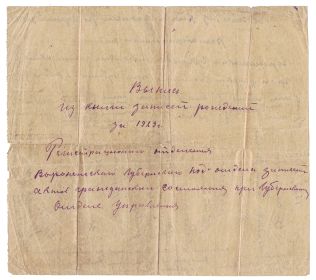 Выпись
из книги записей рождений
за 1923 г.
Регистрационного отделения
Воронежского Губернского под-отдела записей
актов гражданского состояния при Губернском
Отделе Управления